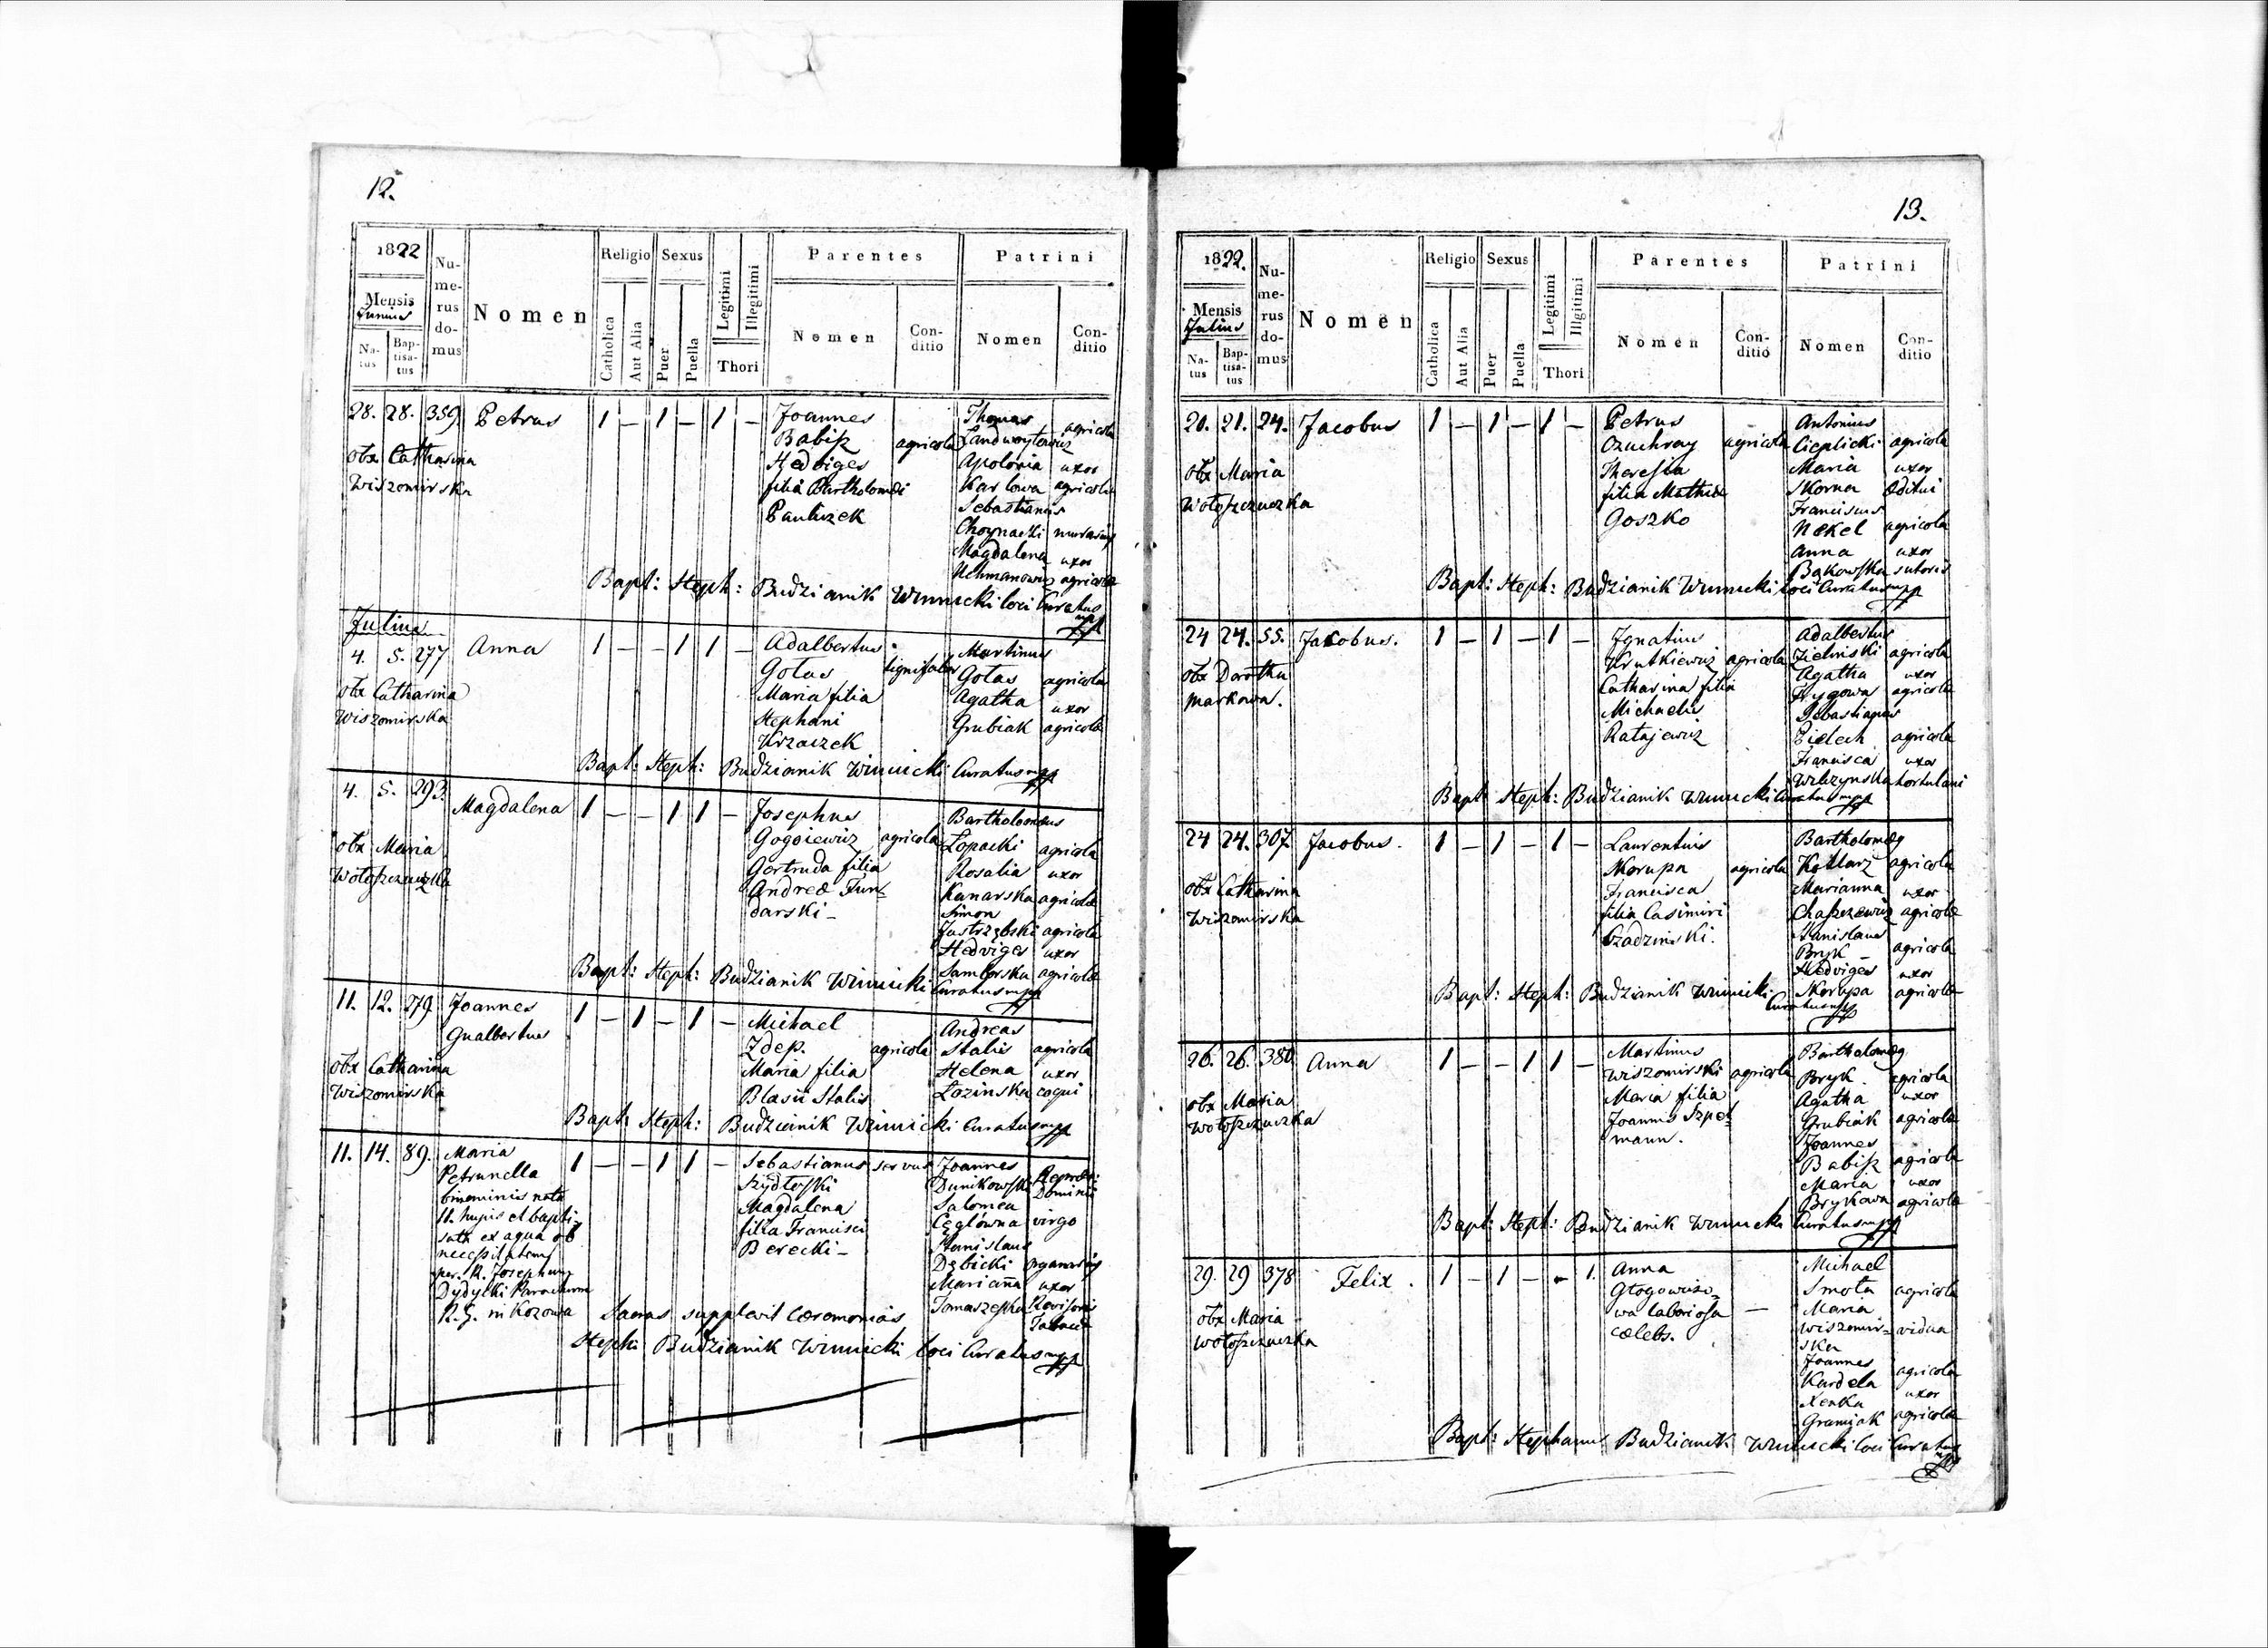 12.
1822
Mensis
Junius
Natus
Baptisatus
Numerus domus
Nomen
Religio
Catholica
Aut Alia
Sexus
Puer
Puella
Legitimi
Illegitimi
Thori
Parentes
Nomen
Conditio
Patrini
Nomen
Conditio
28. 28. 359. Petrus 1 – 1 – 1 –
obx Catharina
Wiszomirska
Joannes
Babisz agricola
Hedviges
filia Bartholomæi
Pauliszek
Thomas agricola
Apolonia uxor
Karlowa agricola
Sebastianus
Choynacki murarius
Magdalena uxor
agricola
Bapt: Steph: Budzianik Winnicki loci Curatus mpp
Julius
4. 5. 277 Anna 1 – – 1 1 –
obx Catharina
Wiszomirska
Adalbertus
Gołas lignifaber
Maria filia
Stephani
Krzaczek
Martinus
Gołas agricola
Agatha uxor
Grubiak agricola
Bapt: Steph: Budzianik Winnicki Curatus mpp
4. 5. 293. Magdalena 1 – – 1 1 –
obx Maria
Wołoszczuczka
Josephus
Gogoiewicz agricola
Gertruda filia
Andreæ Fun=
darski –
Bartholomæus
Łopacki agricola
Rosalia uxor
Kanarska agricola
Simon
Jastrzębski agricola
Hedviges uxor
Samborska agricola
Bapt: Steph: Budzianik Winnicki Curatus mpp
11. 12. 279 Joannes 1 – 1 – 1 –
Gualbertus
obx Catharina
Wiszomirska
Michael
Zdep. agricola
Maria filia
Blasii Stalis
Andreas
Stalis agricola
Helena uxor
Łozinska coqui
Bapt: Steph: Budzianik Winnicki Curatus mpp
11. 14. 89. Maria 1 – – 1 1 –
Petrunella
binominis nata
11. hujus et bapti-
sata ex aqua ob
necessitatem
per R. Josephum
Dydycki Parochum
R. G. in Kozowa
Sebastianus servus
Szydłoski
Magdalena
filia Francisci
Berecki –
Joannes
Dunikowski
Dominii
Salomea
Cęglówna virgo
Stanislaus
Dębicki organarius
Marianna uxor
Tomaszeska Revisoris
Sacras supplevit Cæremonias
Steph: Budzianik Winnicki loci Curatus mpp
13.
1822.
Mensis
Julius
Natus
Baptisatus
Numerus domus
Nomen
Religio
Catholica
Aut Alia
Sexus
Puer
Puella
Legitimi
Illgitimi
Thori
Parentes
Nomen
Conditio
Patrini
Nomen
Conditio
20. 21. 24. Jacobus 1 – 1 – 1 –
obx Maria
Wołoszczuczka
Petrus
Czuchray agricola
Theresia
filia Mathiæ
Goszko
Antonius
Cieplicki agricola
Maria uxor
Skorna Æditui
Franciscus
Nekel agricola
Anna uxor
Bąkowska sutoris
Bapt: Steph: Budzianik Winnicki loci Curatus mpp
24 24. 55. Jacobus. 1 – 1 – 1 –
obx Dorothea
Markowa.
Ignatius
Krutkiewicz agricola
Catharina filia
Michaelis
Ratajewicz
Adalbertus
Zielinski agricola
Agatha uxor
Hygowa agricola
Sebastianus
Pielech agricola
Francisca uxor
hortulani
Bapt: Steph: Budzianik Winnicki Curatus mpp
24 24. 307 Jacobus. 1 – 1 – 1 –
obx Catharina
Wiszomirska
Laurentius
Skorupa agricola
Francisca
filia Casimiri
Czadzinski.
Bartholomæg
Kotlarz agricola
Marianna uxor
Chaszczewicz agricola
Stanislaus
Bryk – agricola
Hedviges uxor
Skorupa agricola
Bapt: Steph: Budzianik Winnicki Curatus mpp
26. 26. 380 Anna 1 – – 1 1 –
obx Maria
Wołoszczuczka
Martinus
Wiszomirski agricola
Maria filia
Joannis Szpet=
mann.
Bartholomæg
Bryk. agricola
Agatha uxor
Grubiak agricola
Joannes
Babisz agricola
Maria uxor
Brykowa agricola
Bapt: Steph: Budzianik Winnicki Curatus mpp
29. 29 378 Felix. 1 – 1 – – 1.
obx Maria
Wołoszczuczka
Anna
Głogowiczo-
wa laboriosa –
cælebs.
Michael
Smoła agricola
Maria
Wiszomir= vidua
ska
Joannes
Kardela agricola
Xenka uxor
Gramjak agricola
Bapt: Stephanus Budzianik Winnicki loci Curatus mpp